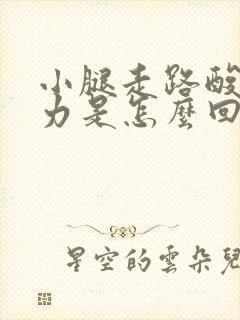 小腿走路酸
力是怎麼回
星空的雲朵兒